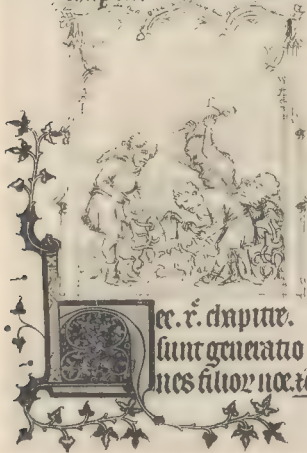 ec. x. chapitre.
sunt generatio
nes filior noe.